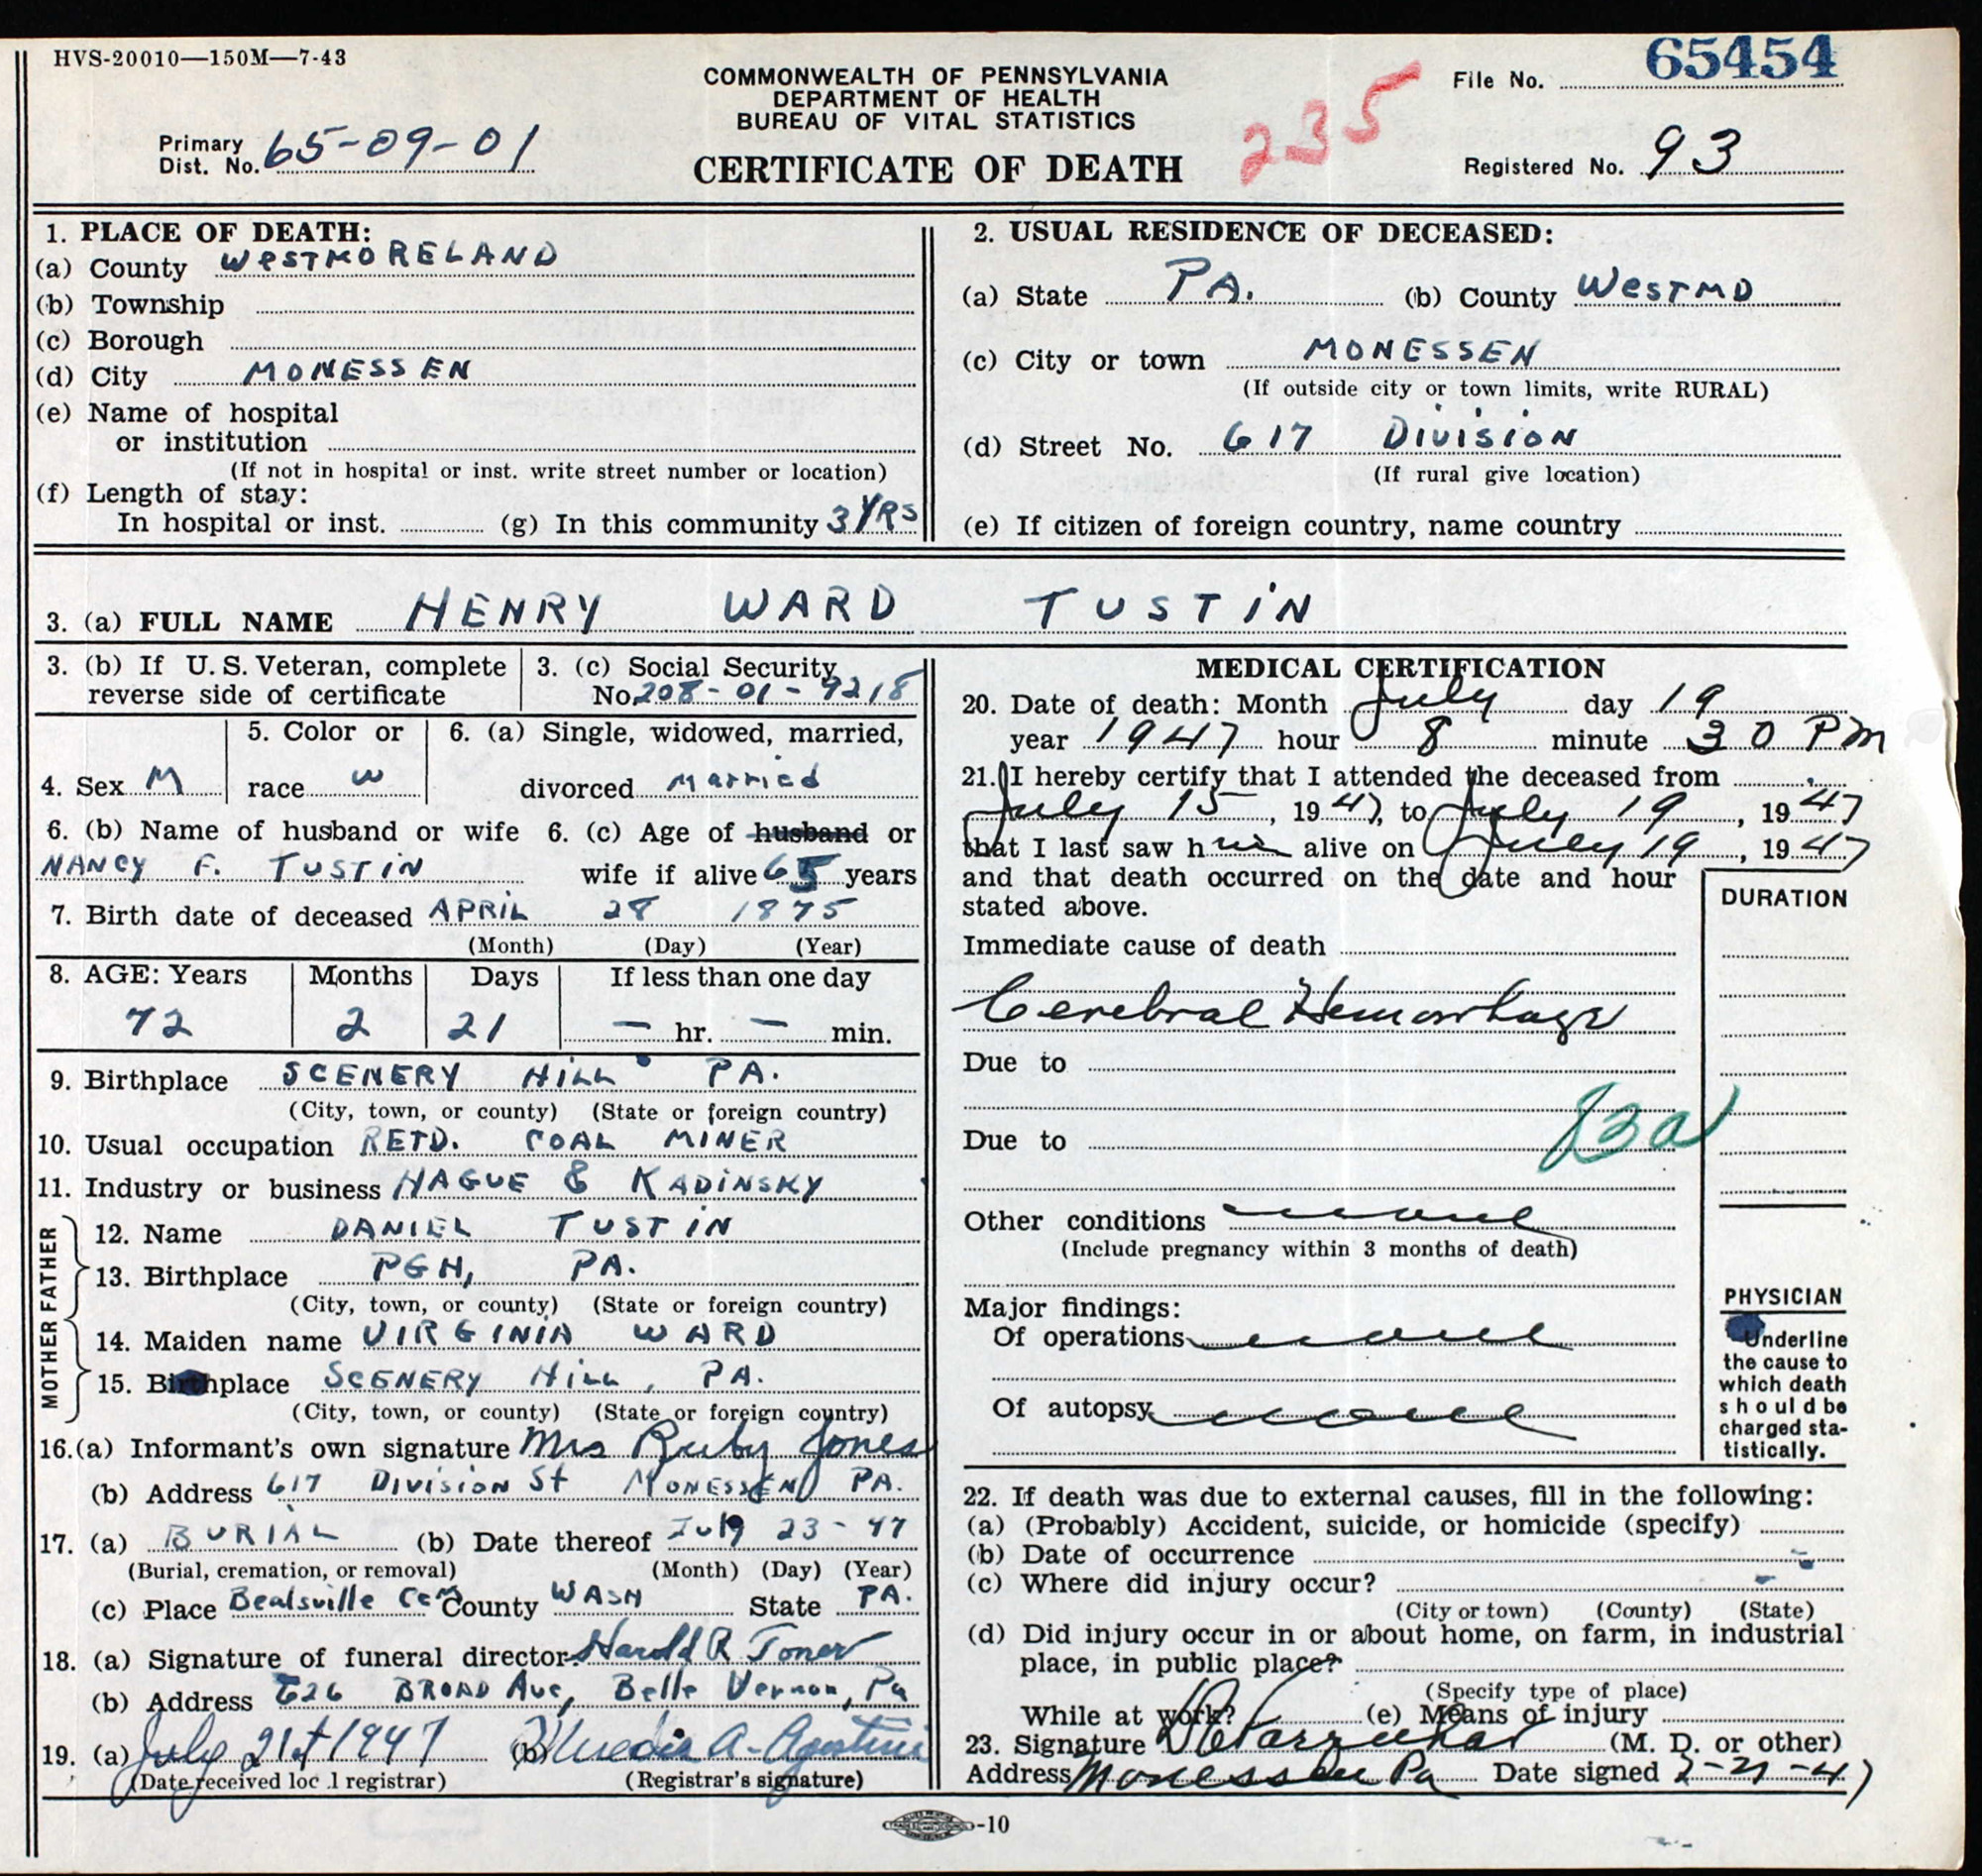 HVS-20010—150M—7-43
65454
File No.
COMMONWEALTH OF PENNSYLVANIA
DEPARTMENT OF HEALTH
BUREAU OF VITAL STATISTICS
235
Primary
Dist. No. 65-09-01
CERTIFICATE OF DEATH
Registered No. 93
1. PLACE OF DEATH:
(a) County WESTMORELAND
(b) Township
(c) Borough
(d) City MONESSEN
(e) Name of hospital
or institution
(If not in hospital or inst. write street number or location)
(f) Length of stay:
In hospital or inst. (g) In this community 3 YRS
2. USUAL RESIDENCE OF DECEASED:
(a) State PA. (b) County WESTMD
(c) City or town MONESSEN
(If outside city or town limits, write RURAL)
(d) Street No. 617 DIVISION
(If rural give location)
(e) If citizen of foreign country, name country
3. (a) FULL NAME HENRY WARD TUSTIN
3. (b) If U.S. Veteran, complete
reverse side of certificate
3. (c) Social Security
No. 208-01-9218
4. Sex M
5. Color or
race W
6. (a) Single, widowed, married,
divorced Married
6. (b) Name of husband or wife
NANCY F. TUSTIN
6. (c) Age of husband or
wife if alive 65 years
7. Birth date of deceased APRIL 28 1875
(Month) (Day) (Year)
8. AGE: Years Months Days If less than one day
72 2 21 — hr. — min.
9. Birthplace SCENERY HILL PA.
(City, town, or county) (State or foreign country)
10. Usual occupation RETD. COAL MINER
11. Industry or business HAGUE & KADINSKY
FATHER
12. Name DANIEL TUSTIN
13. Birthplace PGH, PA.
(City, town, or county) (State or foreign country)
MOTHER
14. Maiden name VIRGINIA WARD
15. Birthplace SCENERY HILL, PA.
(City, town, or county) (State or foreign country)
16.(a) Informant's own signature Mrs Ruby Jones
(b) Address 617 DIVISION St MONESSEN PA.
17. (a) BURIAL (b) Date thereof July 23-47
(Burial, cremation, or removal) (Month) (Day) (Year)
(c) Place Bealsville Cem County WASH State PA.
18. (a) Signature of funeral director Harold R Toner
(b) Address 626 BROAD Ave, Belle Vernon, Pa
19. (a) July 21st 1947 (b) A. Agostini
(Date received local registrar) (Registrar's signature)
MEDICAL CERTIFICATION
20. Date of death: Month July day 19
year 1947 hour 8 minute 30 PM
21. I hereby certify that I attended the deceased from
July 15, 1947, to July 19, 1947
that I last saw him alive on July 19, 1947
and that death occurred on the date and hour
stated above.
DURATION
Immediate cause of death
Cerebral Hemorrhage
Due to
Due to
Other conditions none
(Include pregnancy within 3 months of death)
Major findings:
Of operations none
Of autopsy none
PHYSICIAN
Underline
the cause to
which death
should be
charged sta-
tistically.
22. If death was due to external causes, fill in the following:
(a) (Probably) Accident, suicide, or homicide (specify)
(b) Date of occurrence
(c) Where did injury occur?
(City or town) (County) (State)
(d) Did injury occur in or about home, on farm, in industrial
place, in public place?
(Specify type of place)
While at work? (e) Means of injury
23. Signature (M. D. or other)
Address Monessen Pa Date signed 7-21-47
-10